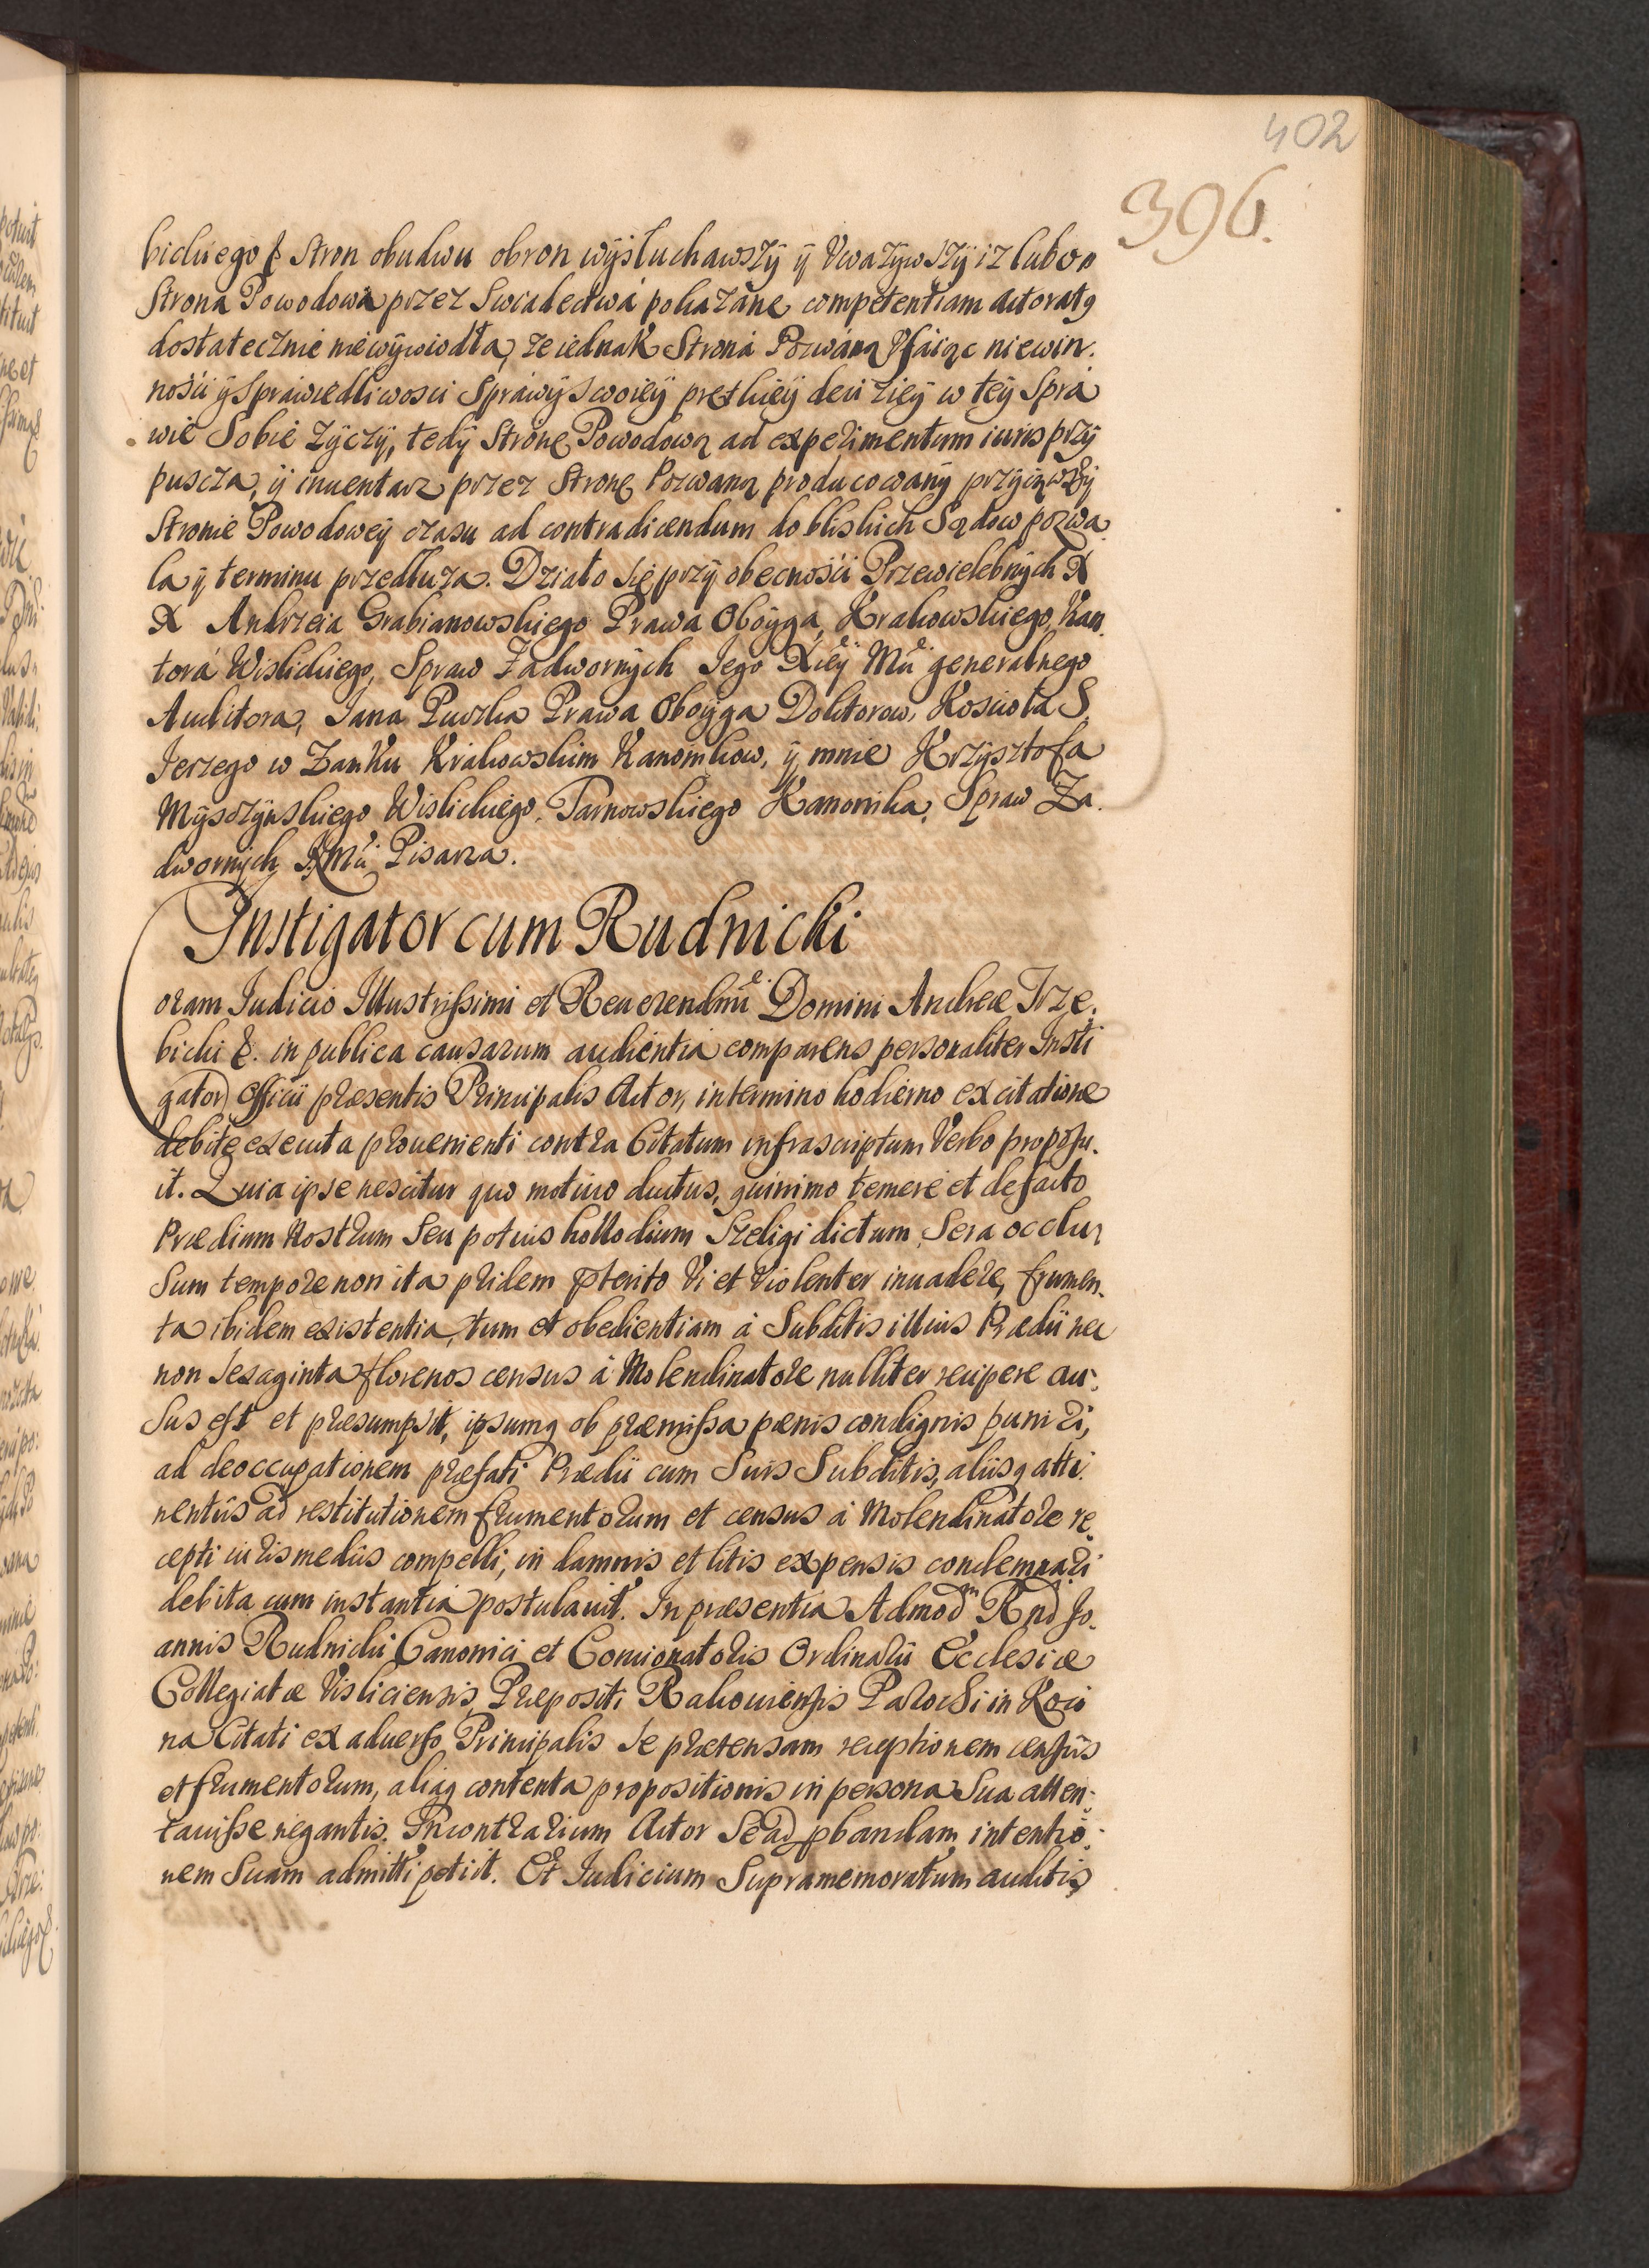 402
396.
bickiego & Stron obudwu obron wysłuchawszÿ ÿ Vważywszÿ iz lubo
Strona Powodowa przez Swiadectwá pokazáne competentiam actoratq
dostatecznie niewÿwiodła, ze iednak Stroná Pozwána Vfáiąc niewin.
nośći ÿ Spráwiedliwosci Spráwÿ Swoieÿ prętkieÿ deciziej w teÿ Sprá
wie Sobie życzÿ, tedÿ Stronę Powodową ad experimentum iuris przÿ
puscza, ÿ inuentarz przez Stronę Pozwaną producowanÿ przyiąwszÿ
Stronie Powodoweÿ czasu ad contradicendum do bliskich Sądow pozwa
la ÿ terminu przedłuza. Działo się przÿ obecnośći Przewielebnÿch X
X Andrzeia Grabianowskiego Prawa Oboÿga, Krakowskiego, Kan
torá Wislickiego, Spraw Zadwornÿch Jego Xcieÿ Mci generalnego
Auditora, Jana Puczka Prawa Oboÿga Doktorow, Kosciołá S.
Jerzego w Zamku Krakowskim Kanonikow, ÿ mnie Krzÿsztofa
Mÿsczÿnskiego Wislickiego, Tarnowskiego Kanonika, Spraw Za.
dwornÿch JXMci Pisarza.
Instigator cum Rudnicki
oram Judicio Illustrissimi et Reuerendmi Domini Andreæ Trze.
bicki &. in publica causarum audientia comparens personaliter Insti
gator Officii præsentis Principalis Actor, in termino hodierno ex citatione
debite executa prouenienti contra Citatum infrascriptum Verbo proposu.
it. Quia ipse nescitur quo motiuo ductus, quinimo temere et de facto
Prædium Nostrum Seu potius hollodium Szeligi dictum, Sera occlu
Sum tempore non ita pridem pterito Vi et Violenter inuadere, frumen.
ta ibidem existentia, tum et obedientiam á Subditis illius Prædii nec
non Sexaginta florenos census á Molendinatore nulliter recipere au.
Sus est et præsumpsit, ipsumq ob præmissa pœnis condignis puniri,
ad deoccupationem præfati Prædii cum Suis Subditis, aliisq atti.
nentiis ad restitutionem frumentorum et census á Molendinatore re.
cepti iuris mediis compelli, in damnis et litis expensis condemnari
debita cum instantia postulauit. In præsentia Admodm Rnd Jo.
annis Rudnicki Canonici et Concionatoris Ordinarii Ecclesiæ
Collegiatæ Visliciensis, Præpositi Rakouiensis Parochi in Koci
na Citati ex aduerso Principalis Se prætensam receptionem census
et frumentorum, aliaq contenta propositionis in persona Sua atten.
tauisse negantis. In contrarium Actor Se ad pbandam intentio.
nem Suam admitti petiit. Et Judicium Supramemoratum auditis